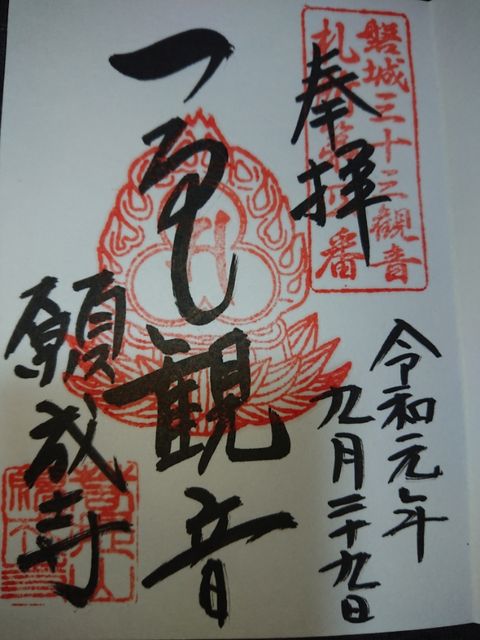 磐城三十三観音
札所第 番
奉拝
令和元年
九月二十九日
観音
願成寺